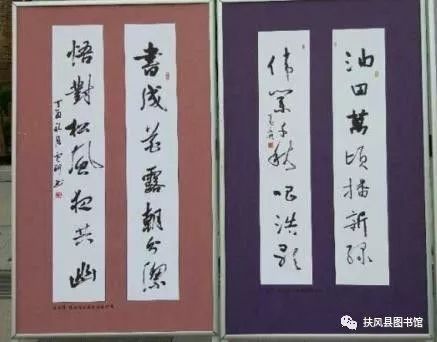 書成花露朝分潔
悟對松風夜共幽
丁酉
油田萬頃播新綠
偉業千秋唱浩歌
扶风县图书馆